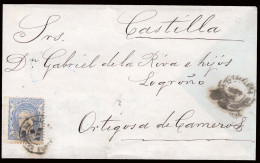 Castilla
Srs.
Dn Gabriel de la Riva e hijos
Logroño
Ortigosa de Cameros